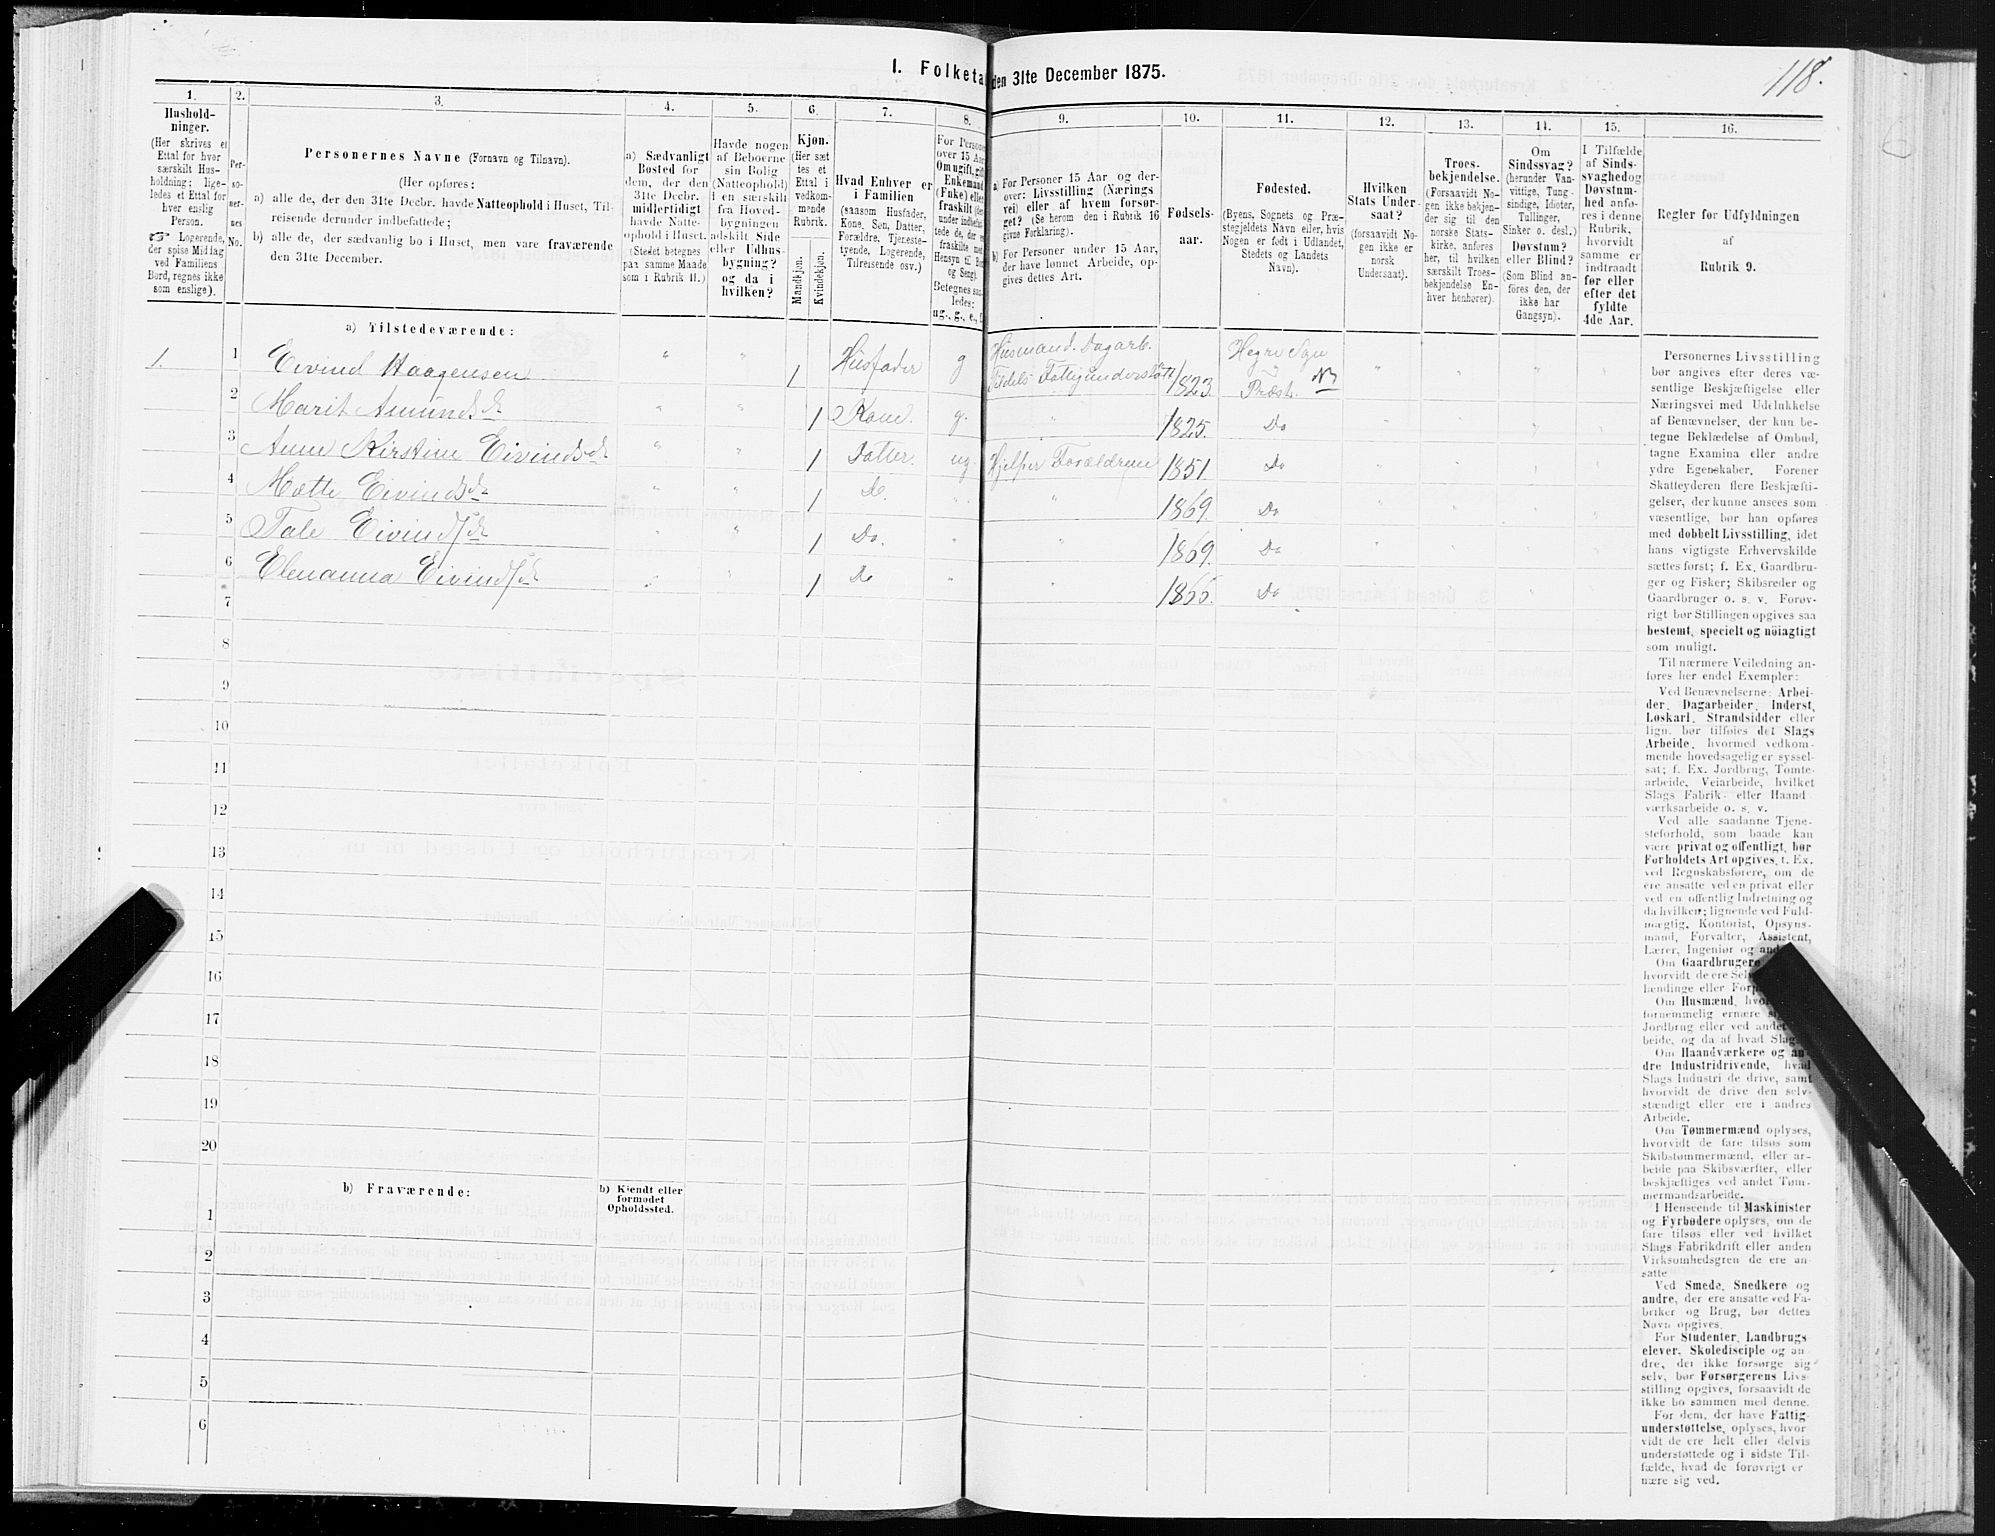 118.
I. Folketa
den 31te December 1875.
1.
Hushold-
ninger.
(Her skrives et
Ettal for hver
særskilt Hus-
holdning; lige-
ledes et Ettal for
hver enslig
Person.
☞ Logerende,
der spise Middag
ved Familiens
Bord, regnes ikke
som enslige).
2.
Per-
so-
ner-
nes
No.
3.
Personernes Navne (Fornavn og Tilnavn).
(Her opføres:
a) alle de, der den 31te Decbr. havde Natteophold i Huset, Til-
reisende derunder indbefattede;
b) alle de, der sædvanlig bo i Huset, men vare fraværende
den 31te December.
4.
a) Sædvanligt
Bosted for
dem, der den
31te Decbr.
midlertidigt
havde Natte-
ophold i Huset.
(Stedet betegnes
paa samme Maade
som i Rubrik 11.)
5.
Havde nogen
af Beboerne
sin Bolig
(Natteophold)
i en særskilt
fra Hoved-
bygningen
adskilt Side
eller Udhus-
bygning?
og da i
hvilken?
6.
Kjøn.
(Her sæt-
tes et
Ettal i
vedkom-
mende
Rubrik.
Mandkjøn.
Kvindekjøn.
7.
Hvad Enhver er
i Familien
(saasom Husfader,
Kone, Søn, Datter,
Forældre, Tjeneste-
tyende, Logerende,
Tilreisende osv.)
8.
For Personer
over 15 Aar:
Om ugift, gift,
Enkemand
(Enke) eller
fraskilt
Betegnes saa-
ledes:
ug., g., e., f.
9.
a) For Personer 15 Aar og der-
over: Livsstilling (Nærings
vei) eller af hvem forsør-
get? (Se herom den i Rubrik 16
givne Forklaring).
b) For Personer under 15 Aar,
der have lønnet Arbeide, op-
gives dettes Art.
10.
Fødsels-
aar.
11.
Fødested.
(Byens, Sognets og Præ-
stegjeldets Navn eller, hvis
Nogen er født i Udlandet,
Stedets og Landets
Navn).
12.
Hvilken
Stats Under-
saat?
(forsaavidt No-
gen ikke er
norsk
Undersaat).
13.
Troes-
bekjendelse.
(Forsaavidt No-
gen ikke bekjen-
der sig til den
norske Stats-
kirke, anføres
her, til hvilken
særskilt Troes-
bekjendelse En-
hver henhører).
14.
Om
Sindssvag?
(herunder Van-
vittige, Tung-
sindige, Idioter,
Tullinger,
Sinker o. desl.)
Døvstum?
eller Blind?
(Som Blind an-
føres den, der
ikke har
Gangsyn).
15.
I Tilfælde
af Sinds-
svaghed og
Døvstum-
hed anfø-
res i denne
Rubrik,
hvorvidt
samme er
indtraadt
før eller
efter det
fyldte
4de Aar.
16.
Regler for Udfyldningen
af
Rubrik 9.
a) Tilstedeværende:
1. 1 Eivind Haagensen " " 1 Husfader g Husmand. Dagarb. Tildels Fattigunderstøtt 1823. Hegre Sogn og Præst.
2 Marit Amundsdr " " 1 Kone. g. " 1825. Do
3 Anne Kirstine Eivindsdr " " 1 Datter. ug. Hjelper Forældrene 1851. Do
4 Mette Eivindsdr " " 1 Do. " " 1869. Do
5 Tale Eivindsdr " " 1 Do. " " 1869. Do
6 Elenanna Eivindsdr " " 1 Do " " 1866. Do
7
8
9
10
11
12
13
14
15
16
17
18
19
20
b) Fraværende:
b) Kjendt eller
formodet
Opholdssted.
1
2
3
4
5
6
Personernes Livsstilling
bør angives efter deres væ-
sentlige Beskjæftigelse eller
Næringsvei med Udelukkelse
af Benævnelser, der kun be-
tegne Beklædelse af Ombud,
tagne Examina eller andre
ydre Egenskaber. Forener
Skatteyderen flere Beskjæfti-
gelser, der kunne ansees som
væsentlige, bør han opføres
med dobbelt Livsstilling, idet
hans vigtigste Erhvervskilde
sættes først; f. Ex. Gaardbru-
ger og Fisker; Skibsreder og
Gaardbruger o. s. v. Forøv-
rigt bør Stillingen opgives saa
bestemt, specielt og nøiagtigt
som muligt.
Til nærmere Veiledning an-
føres her endel Exempler:
Ved Benævnelserne: Arbei-
der, Dagarbeider, Inderst,
Løskarl, Strandsidder eller
lign. bør tilføies det Slags
Arbeide, hvormed vedkom-
mende hovedsagelig er syssel-
sat; f. Ex. Jordbrug, Tomte-
arbeide, Veiarbeide, hvilket
Slags Fabrik- eller Haand
værksarbeide o. s. v.
Ved alle saadanne Tjene-
steforhold, som baade kan
være privat og offentligt, bør
Forholdets Art opgives, f. Ex.
ved Regnskabsførere, om de
ere ansatte ved en privat eller
ved en offentlig Indretning og
da hvilken; lignende ved Fuld-
mægtig, Kontorist, Opsyns-
mand, Forvalter, Assistent,
Lærer, Ingeniør og
Om Gaardbrugere
hvorvidt de ere
lændinge eller
Om Husmænd,
fornemmelig ernære
Jordbrug eller ved andet
beide, og da af hvad Slags
Om Haandværkere og an-
dre Industridrivende, hvad
Slags Industri de drive, samt
hvorvidt de drive den selv-
stændigt eller ere i andres
Arbeide.
Om Tømmermænd oplyses,
hvorvidt de fare tilsøs som
Skibstømmermænd, eller ar-
beide paa Skibsværfter, eller
beskjæftiges ved andet Tøm-
mermandsarbeide.
I Henseende til Maskinister
og Fyrbødere oplyses, om de
fare tilsøs eller ved hvilket
Slags Fabrikdrift eller anden
Virksomhedsgren de ere an-
satte
Ved Smede, Snedkere og
andre, der ere ansatte ved Fa-
briker og Brug, bør dettes
Navn opgives.
For Studenter, Landbrugs
elever, Skoledisciple og an
dre, der ikke forsørge sig
selv, bør Forsørgerens Livs-
stilling opgives, forsaavidt de
ikke bo sammen med denne.
For dem, der have Fattig-
understøttelse, oplyses, hvor
vidt de ere helt eller delvis
understøttede og i sidste Til-
fælde, hvad de forøvrigt er
nære sig ved.